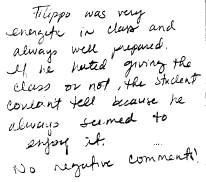 Filippo was very
energetic in class and
always well prepared.
If he hated giving the
class or not, the student
couldn't tell because he
always seemed to
enjoy it.
No negative comments!